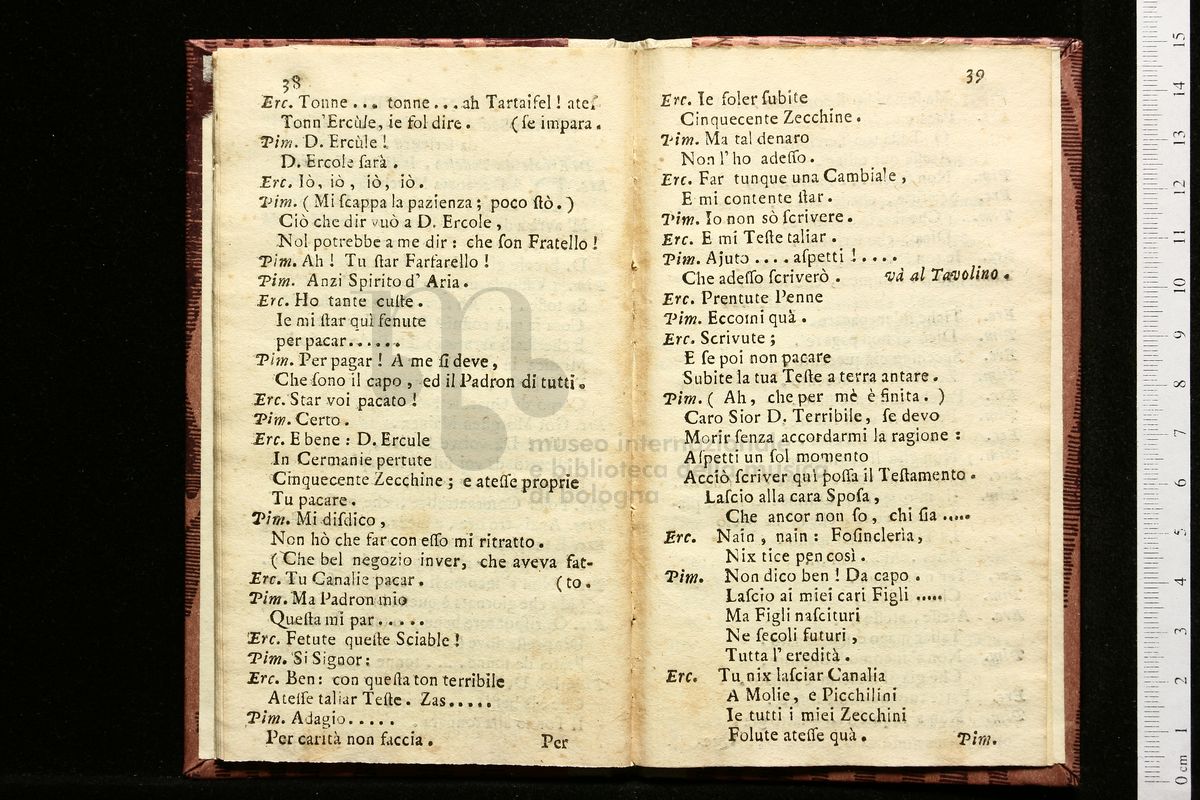 38
Erc. Tonne... tonne...ah Tartaifel! ateſ
Tonn'Ercùle, ie ſol dire. (ſe impara.
Pim. D. Ercùle!
D. Ercole ſarà.
Erc. Iò, iò, iò, iò.
Pim. (Mi ſcappa la pazienza; poco ſtò.)
Ciò che dir vuò a D. Ercole,
Nol potrebbe a me dir: che ſon Fratello!
Pim. Ah! Tu ſtar Farfarello!
Pim. Anzi Spirito d'Aria.
Erc. Ho tante cuſte.
Ie mi ſtar quì ſenute
per pacar......
Pim. Per pagar! A me ſi deve,
Che ſono il capo, ed il Padron di tutti.
Erc. Star voi pacato!
Pim. Certo.
Erc. E bene: D. Ercule
In Cermanie pertute
Cinquecente Zecchine; e ateſſe proprie
Tu pacare.
Pim. Mi diſdico,
Non hò che far con eſſo mi ritratto.
(Che bel negozio inver, che aveva fat-
Erc. Tu Canalie pacar. (to.
Pim. Ma Padron mio
Queſta mi par.....
Erc. Fetute queſte Sciable!
Pim. Si Signor:
Erc. Ben: con queſta ton terribile
Ateſſe taliar Teſte. Zas.....
Pim. Adagio.....
Per carità non faccia. Per
39
Erc. Ie ſoler ſubite
Cinquecente Zecchine.
Pim. Ma tal denaro
Non l'ho adeſſo.
Erc. Far tunque una Cambiale,
E mi contente ſtar.
Pim. Io non sò ſcrivere.
Erc. E mi Teſte taliar.
Pim. Ajuto....aſpetti!....
Che adeſſo ſcriverò. và al Tavolino.
Erc. Prentute Penne
Pim. Eccomi quà.
Erc. Scrivute;
E ſe poi non pacare
Subite la tua Teſte a terra antare.
Pim. (Ah, che per mè è finita.)
Caro Sior D. Terribile, ſe devo
Morir ſenza accordarmi la ragione:
Aſpetti un ſol momento
Acciò ſcriver quì poſſa il Teſtamento.
Laſcio alla cara Spoſa,
Che ancor non ſo, chi ſia.....
Erc. Nain, nain: Foſincleria,
Nix tice pen così.
Pim. Non dico ben! Da capo.
Laſcio ai miei cari Figli.....
Ma Figli naſcituri
Ne ſecoli futuri,
Tutta l'eredità.
Erc. Tu nix laſciar Canalia
A Molie, e Picchilini
Ie tutti i miei Zecchini
Folute ateſſe quà. Pim.
museo internazionale
e biblioteca della musica
di bologna
0 cm 1 2 3 4 5 6 7 8 9 10 11 12 13 14 15